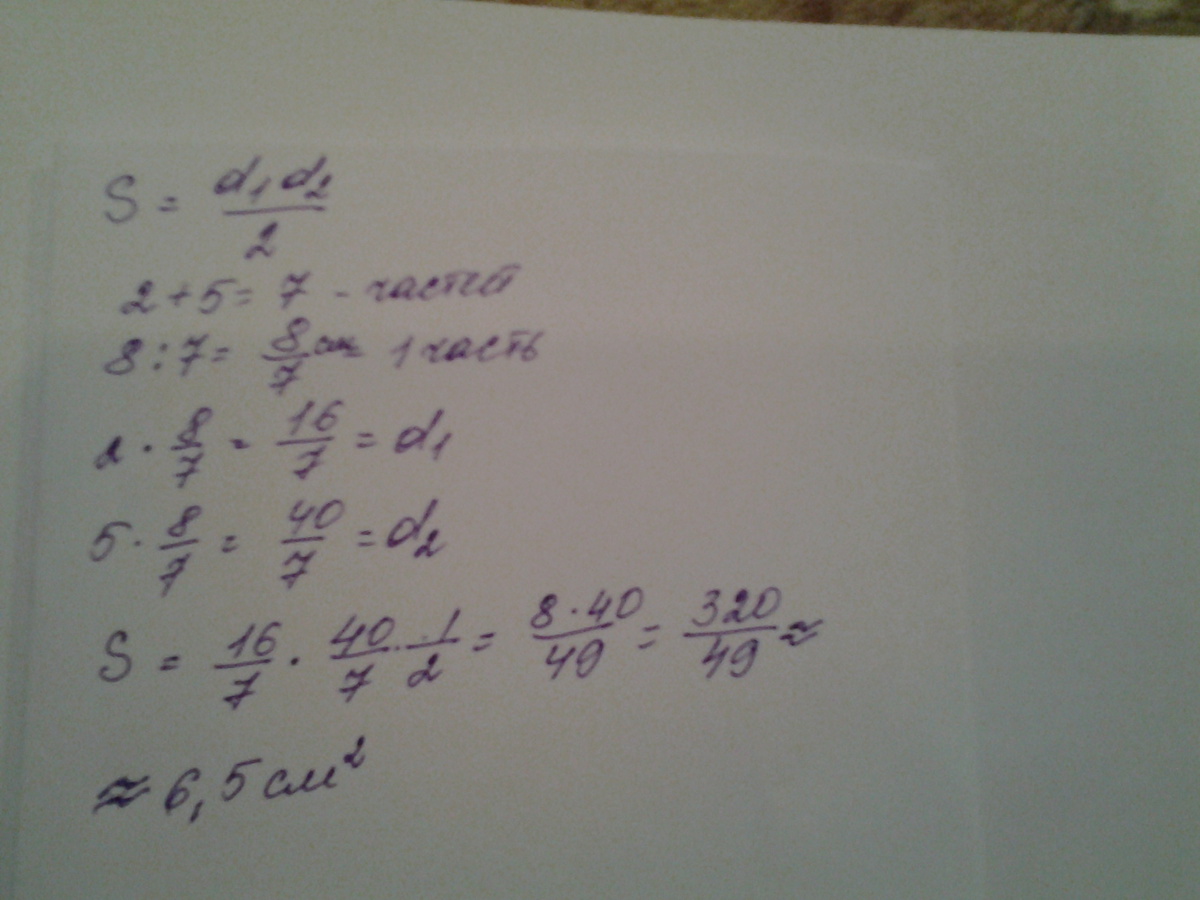 S = d₁d₂/2
2+5= 7 - частей
8:7= 8/7 см 1 часть
2 · 8/7 = 16/7 = d₁
5 · 8/7 = 40/7 = d₂
S = 16/7 · 40/7 · 1/2 = 8·40/49 = 320/49 ≈
≈ 6,5 см²